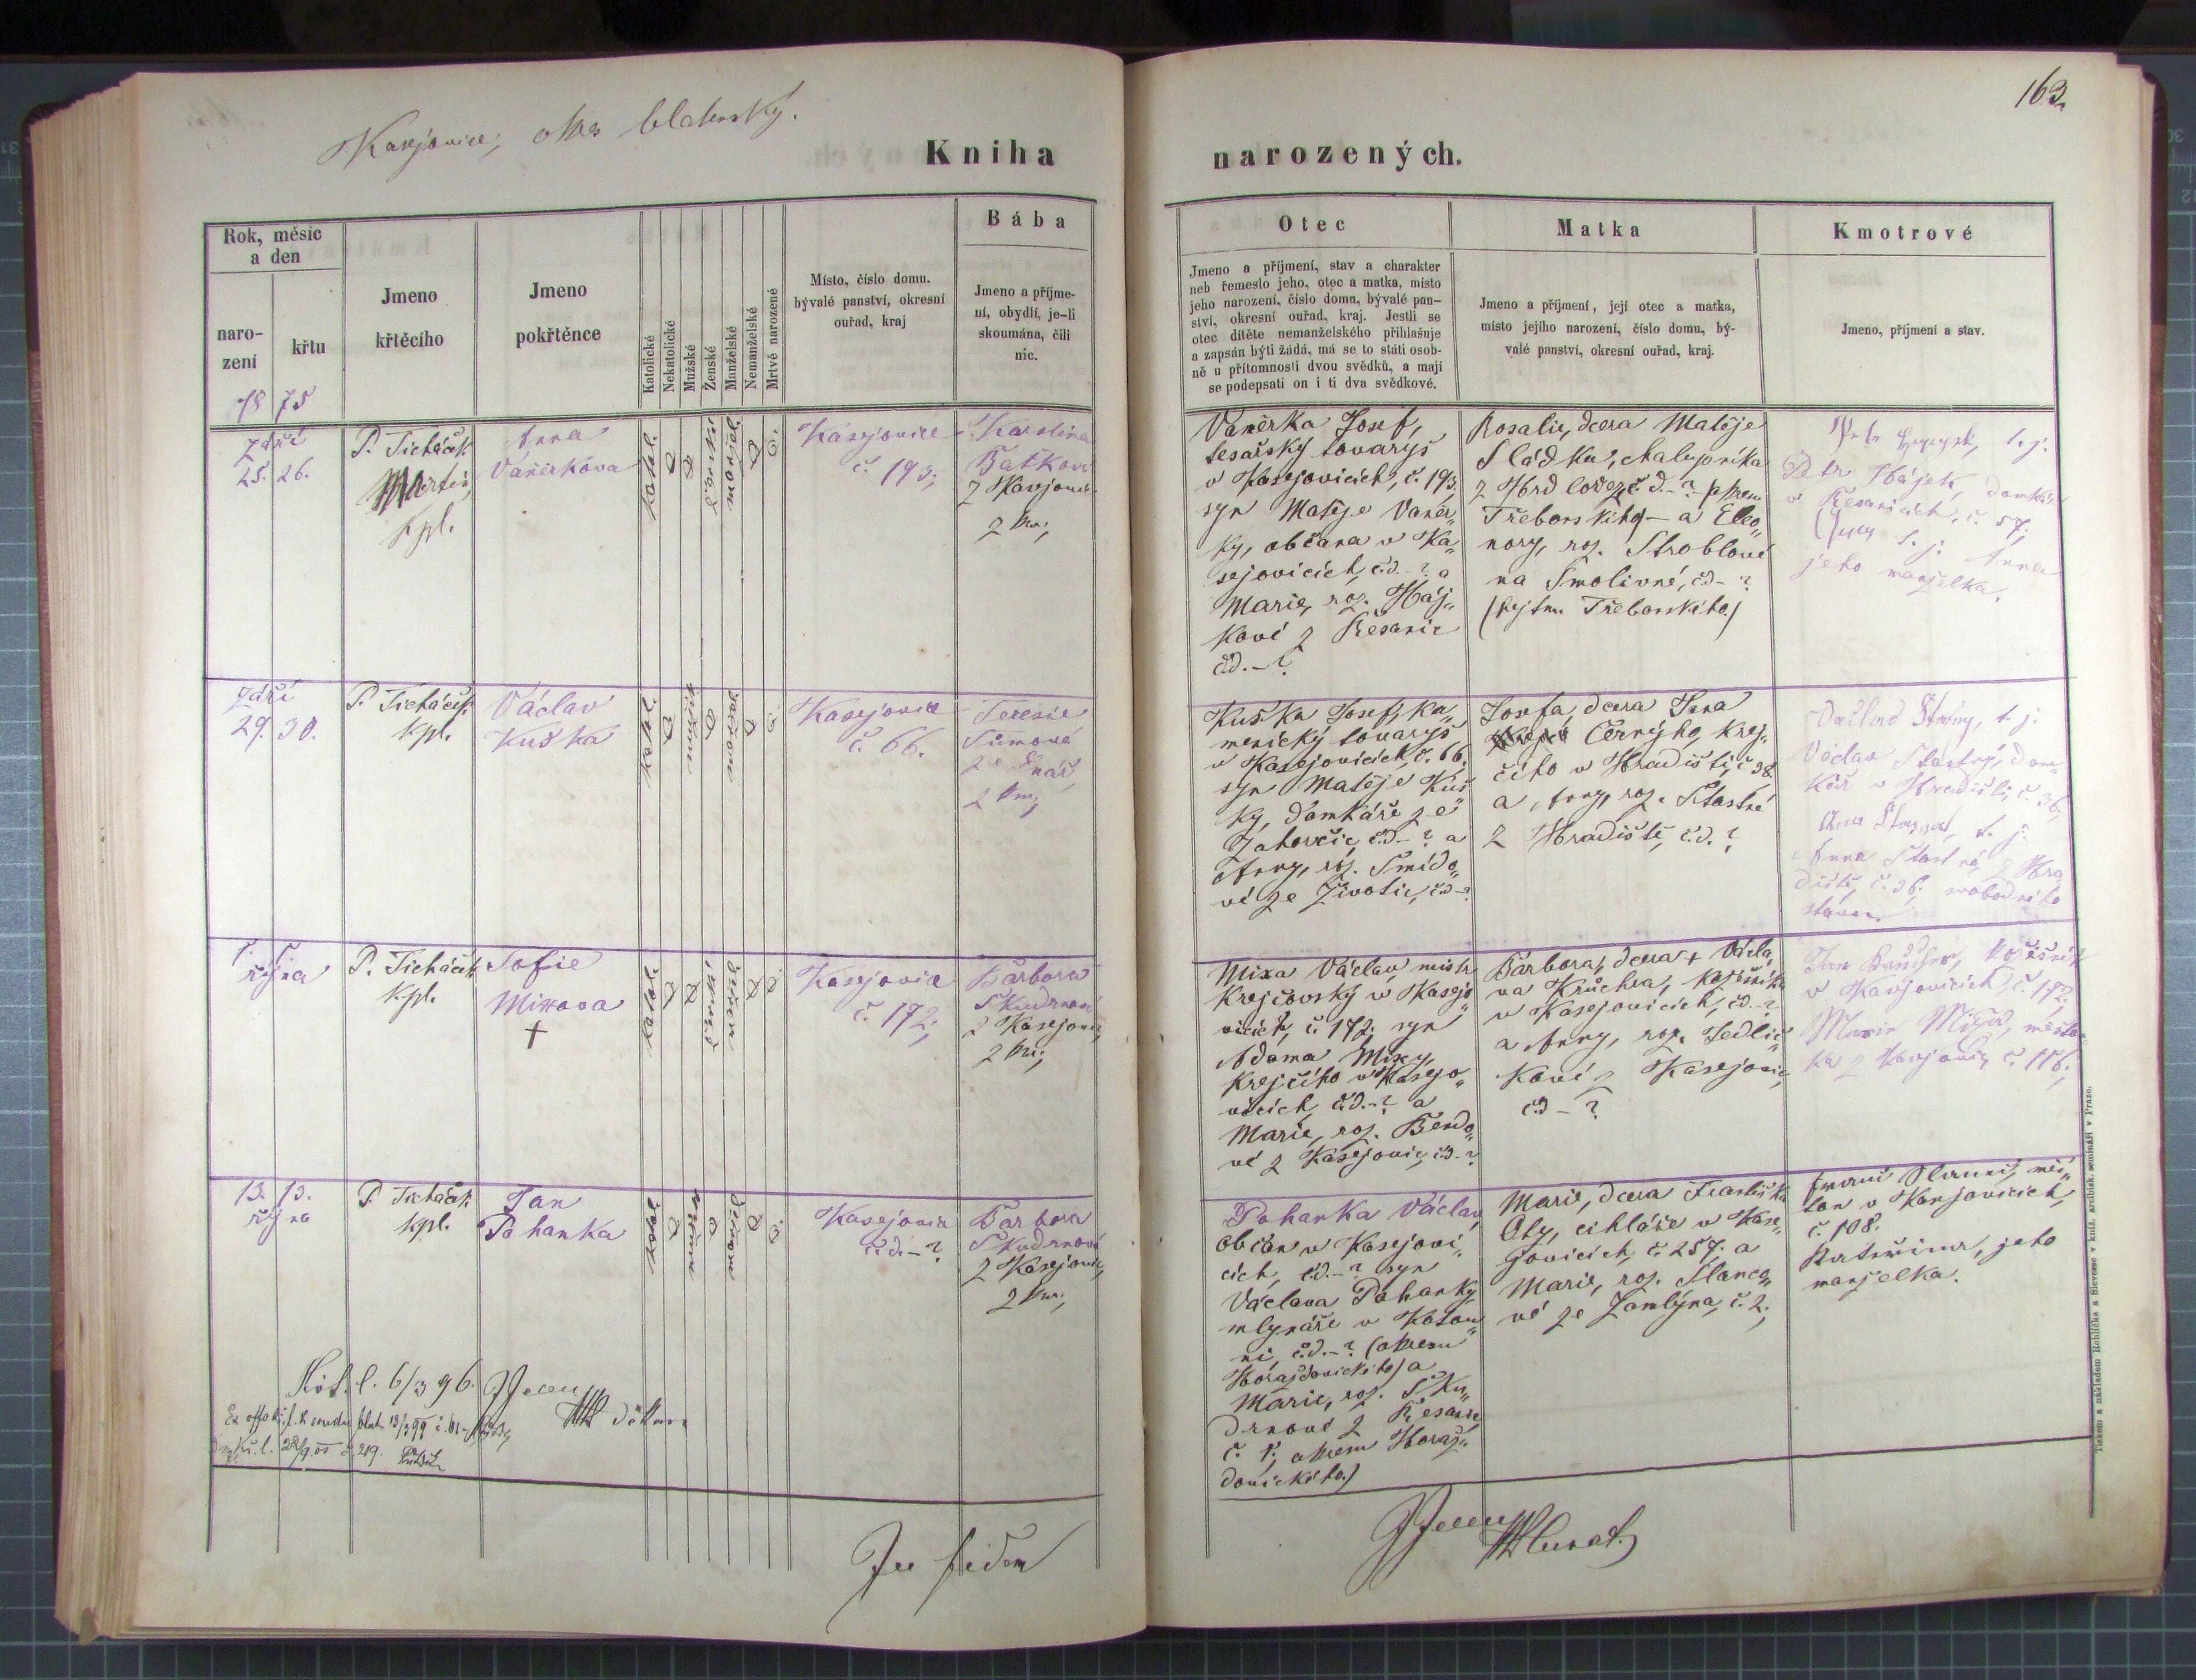 163.
Kasejovice, okres blatenský.
Kniha narozených.
Rok, měsíc
a den
naro-
zení
křtu
18 75
Jmeno
křtěcího
Jmeno
pokřtěnce
Katolické
Nekatolické
Mužské
Ženské
Manželské
Nemanželské
Mrtvě narozené
Místo, číslo domu,
bývalé panství, okresní
ouřad, kraj
Bába
Jmeno a příjme-
ní, obydlí, je-li
skoumána, čili
nic.
Otec
Jmeno a příjmení, stav a charakter
neb řemeslo jeho, otec a matka, místo
jeho narození, číslo domu, bývalé pan-
ství, okresní ouřad, kraj. Jestli se
otec dítěte nemanželského přihlašuje
a zapsán býti žádá, má se to státi osob-
ně u přítomnosti dvou svědků, a mají
se podepsati on i ti dva svědkové.
Matka
Jmeno a příjmení, její otec a matka,
místo jejího narození, číslo domu, bý-
valé panství, okresní ouřad, kraj.
Kmotrové
Jmeno, příjmení a stav.
Září
25. 26.
P. Ticháček
Martin,
kpl.
Anna
Vaněrkova
katol.
ženské
Kasejovice
č. 193;
Karolina
z Kasejovic
zkou;
Vaněrka Josef,
tesařský tovaryš
v Kasejovicích, č. 193,
syn Matěje Vaněr„
ky, občana v Ka„
sejovicích, č.d. – ? a
Marie, roz. Háj„
kové z Řesanic
č.d. – ?
Rosalie, dcera Matěje
Sládka, chalupníka
z Hrdlořez č.d. – ?
Třeborského – a Eleo„
nory, roz. Stroblové
na Smolivné, č.d – ?
Třeborského)
t. j.
Petr Hájek, domkář
v Řesanicích, č. 57;
t. j. Anna
jeho manželka.
Září
29. 30.
P. Ticháček
kpl.
Václav
Kuška
katol.
Kasejovice
č. 66.
Teresie
Šůmová
ze Lnář
zkou;
Kuška Josef, ka„
menický tovaryš
v Kasejovicích, č. 66.
syn Matěje Kuš„
ky, domkáře ze
Zahorčic, č.d – ? a
Anny, roz. Šmído„
vé ze Životic, č.d – ?
Josefa, dcera Jana
Černýho, krej„
čího v Hradišti, č. 38
a Anny, roz. Šťastné
z Hradiště, č.d. ?
t. j.
Václav Šťastný, dom„
kář v Hradišti, č. 36,
t. j.
Anna Šťastná, z Hra„
diště, č. 36. svobodného
stavu.
1. 1.
října
P. Ticháček
kpl.
Sofie
Mixova
†
katol.
Kasejovice
č. 172;
Barbora
Skudrnová
z Kasejovic,
zkou;
Mixa Václav, mistr
krejčovský v Kasejo„
vicích, č. 172. syn
Adama Mixy,
krejčího v Kasejo„
vicích, č.d. – ? a
Marie, roz. Bendo„
vé z Kasejovic, č.d. – ?
Barbora, dcera † Václa„
va Krůchra, kožešníka
v Kasejovicích, č.d. – ?
a Anny, roz. Jedlič„
kové z Kasejovic,
č.d – ?
Jan Krůchr, kožešník
v Kasejovicích, č. 172;
Marie Mixová, měšťan„
ka z Kasejovic, č. 116.
13. 13.
října
P. Ticháček
kpl.
Jan
Pohanka
katol.
Kasejovice
č.d. – ?
Barbora
Skudrnová
z Kasejovic,
zkou;
Pohanka Václav,
občan v Kasejovi„
cích, č.d. – ? syn
Václava Pohanky
mlynáře v Kotou„
ni, č.d. – ? (okresu
Horažďovického) a
Marie, roz. Sku„
drnové z Řesanic,
č. 1; okresu Horaž„
ďovického)
Marie, dcera Františka
Oty, cihláře v Kase„
jovicích, č. 257. a
Marie, roz. Slanco„
vé ze Zamlýna, č. 2;
měš„
ťan v Kasejovicích,
č. 108.
Kateřina, jeho
manželka.
Křt. l. 6/3 96.
In fidem
Tiskem a nákladem Rohlíčka a Sieverse v kníž. arcibisk. semináři v Praze.